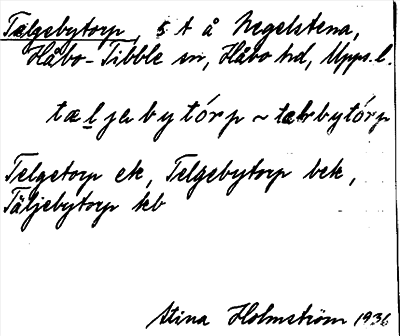 Täljebytorp, s t å Negelstena,
Håbo-Tibble sn, Håbo hd, Upps. l.
tæljabytórp ~ tærbytórp
Telgetorp ek, Telgebytorp bek,
Täljebytorp kb
Stina Holmström 1936